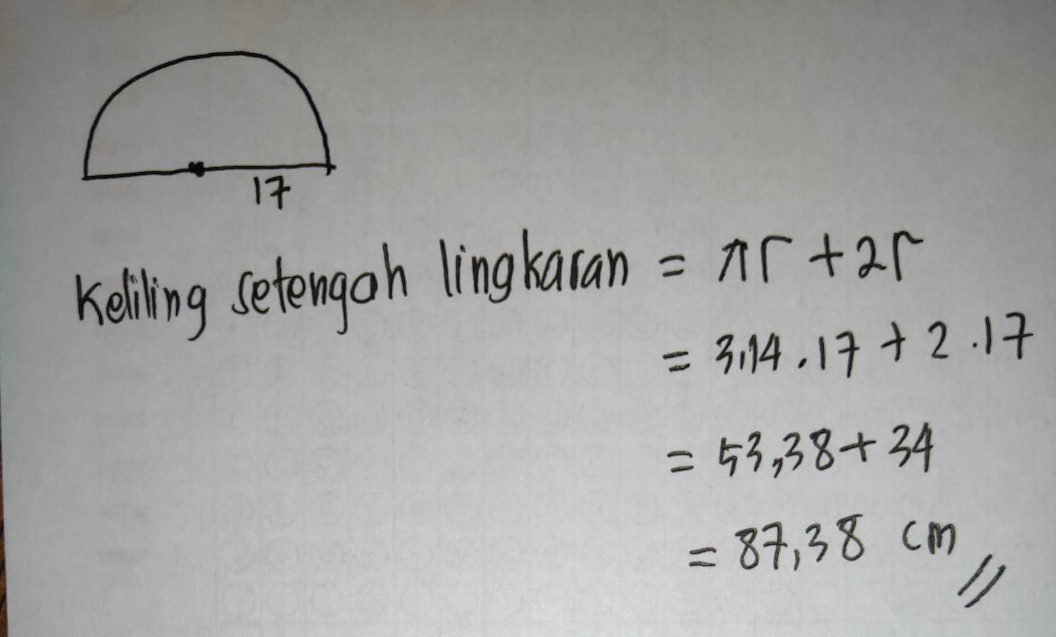 17
Keliling setengah lingkaran = πr + 2r
= 3,14 . 17 + 2 . 17
= 53,38 + 34
= 87,38 cm //